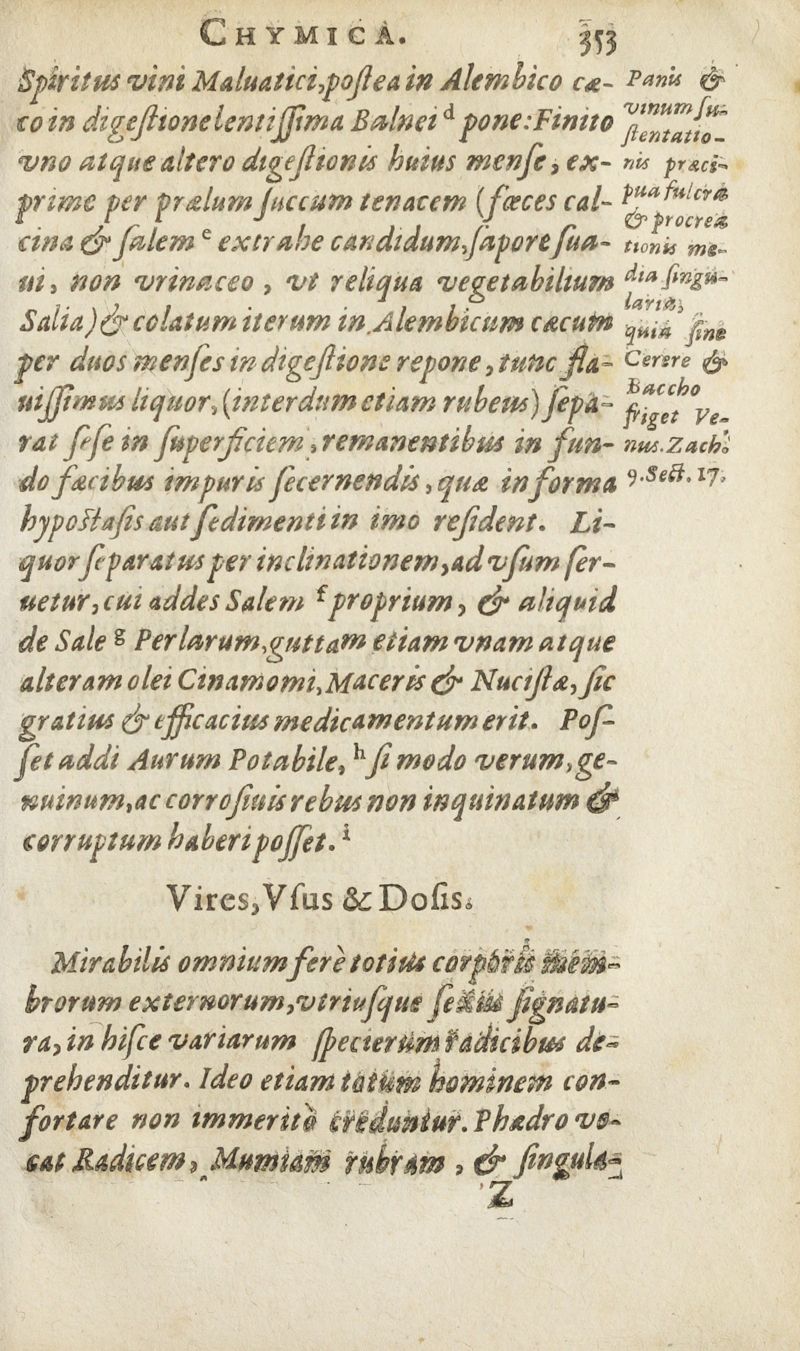 CHYMICA. 353
Spiritus vini Maluatici, postea in Alembico cæ-
co in digestione lentissima Balnei ᵈ pone: Finito
vno atque altero digestionis huius mense, ex-
prime per prælum succum tenacem (fœces cal-
cina & salem ᵉ extrahe candidum, sapore sua-
ui, non vrinaceo, vt reliqua vegetabilium
Salia) & colatum iterum in Alembicum cæcum
per duos menses in digestione repone, tunc fla-
uissimus liquor, (interdum etiam rubeus) sepa-
rat sese in superficiem, remanentibus in fun-
do fæcibus impuris secernendis, quæ in forma
hypostasis aut sedimenti in imo resident. Li-
quor separatus per inclinationem, ad vsum ser-
uetur, cui addes Salem ᶠ proprium, & aliquid
de Sale ᵍ Perlarum, guttam etiam vnam atque
alteram olei Cinamomi, Maceris & Nucistæ, sic
gratius & efficacius medicamentum erit. Pos-
set addi Aurum Potabile, ʰ si modo verum, ge-
nuinum, ac corrosiuis rebus non inquinatum &
corruptum haberi posset. ⁱ
Panis &
vinum su-
stentatio-
nis præci-
pua fulcra
& procrea
tionis me-
dia singu-
laria;
quia sine
Cerere &
Baccho
friget Ve-
nus. Zach.
9. Sect. 17.
Vires, Vsus & Dosis.
Mirabilis omnium ferè totius corporis mem-
brorum externorum, vtriusque sexus signatu-
ra, in hisce variarum specierum radicibus de-
prehenditur. Ideo etiam totum hominem con-
fortare non immeritò creduntur. Phædro vo-
cat Radicem, Mumiam rubram, & singula-
Z